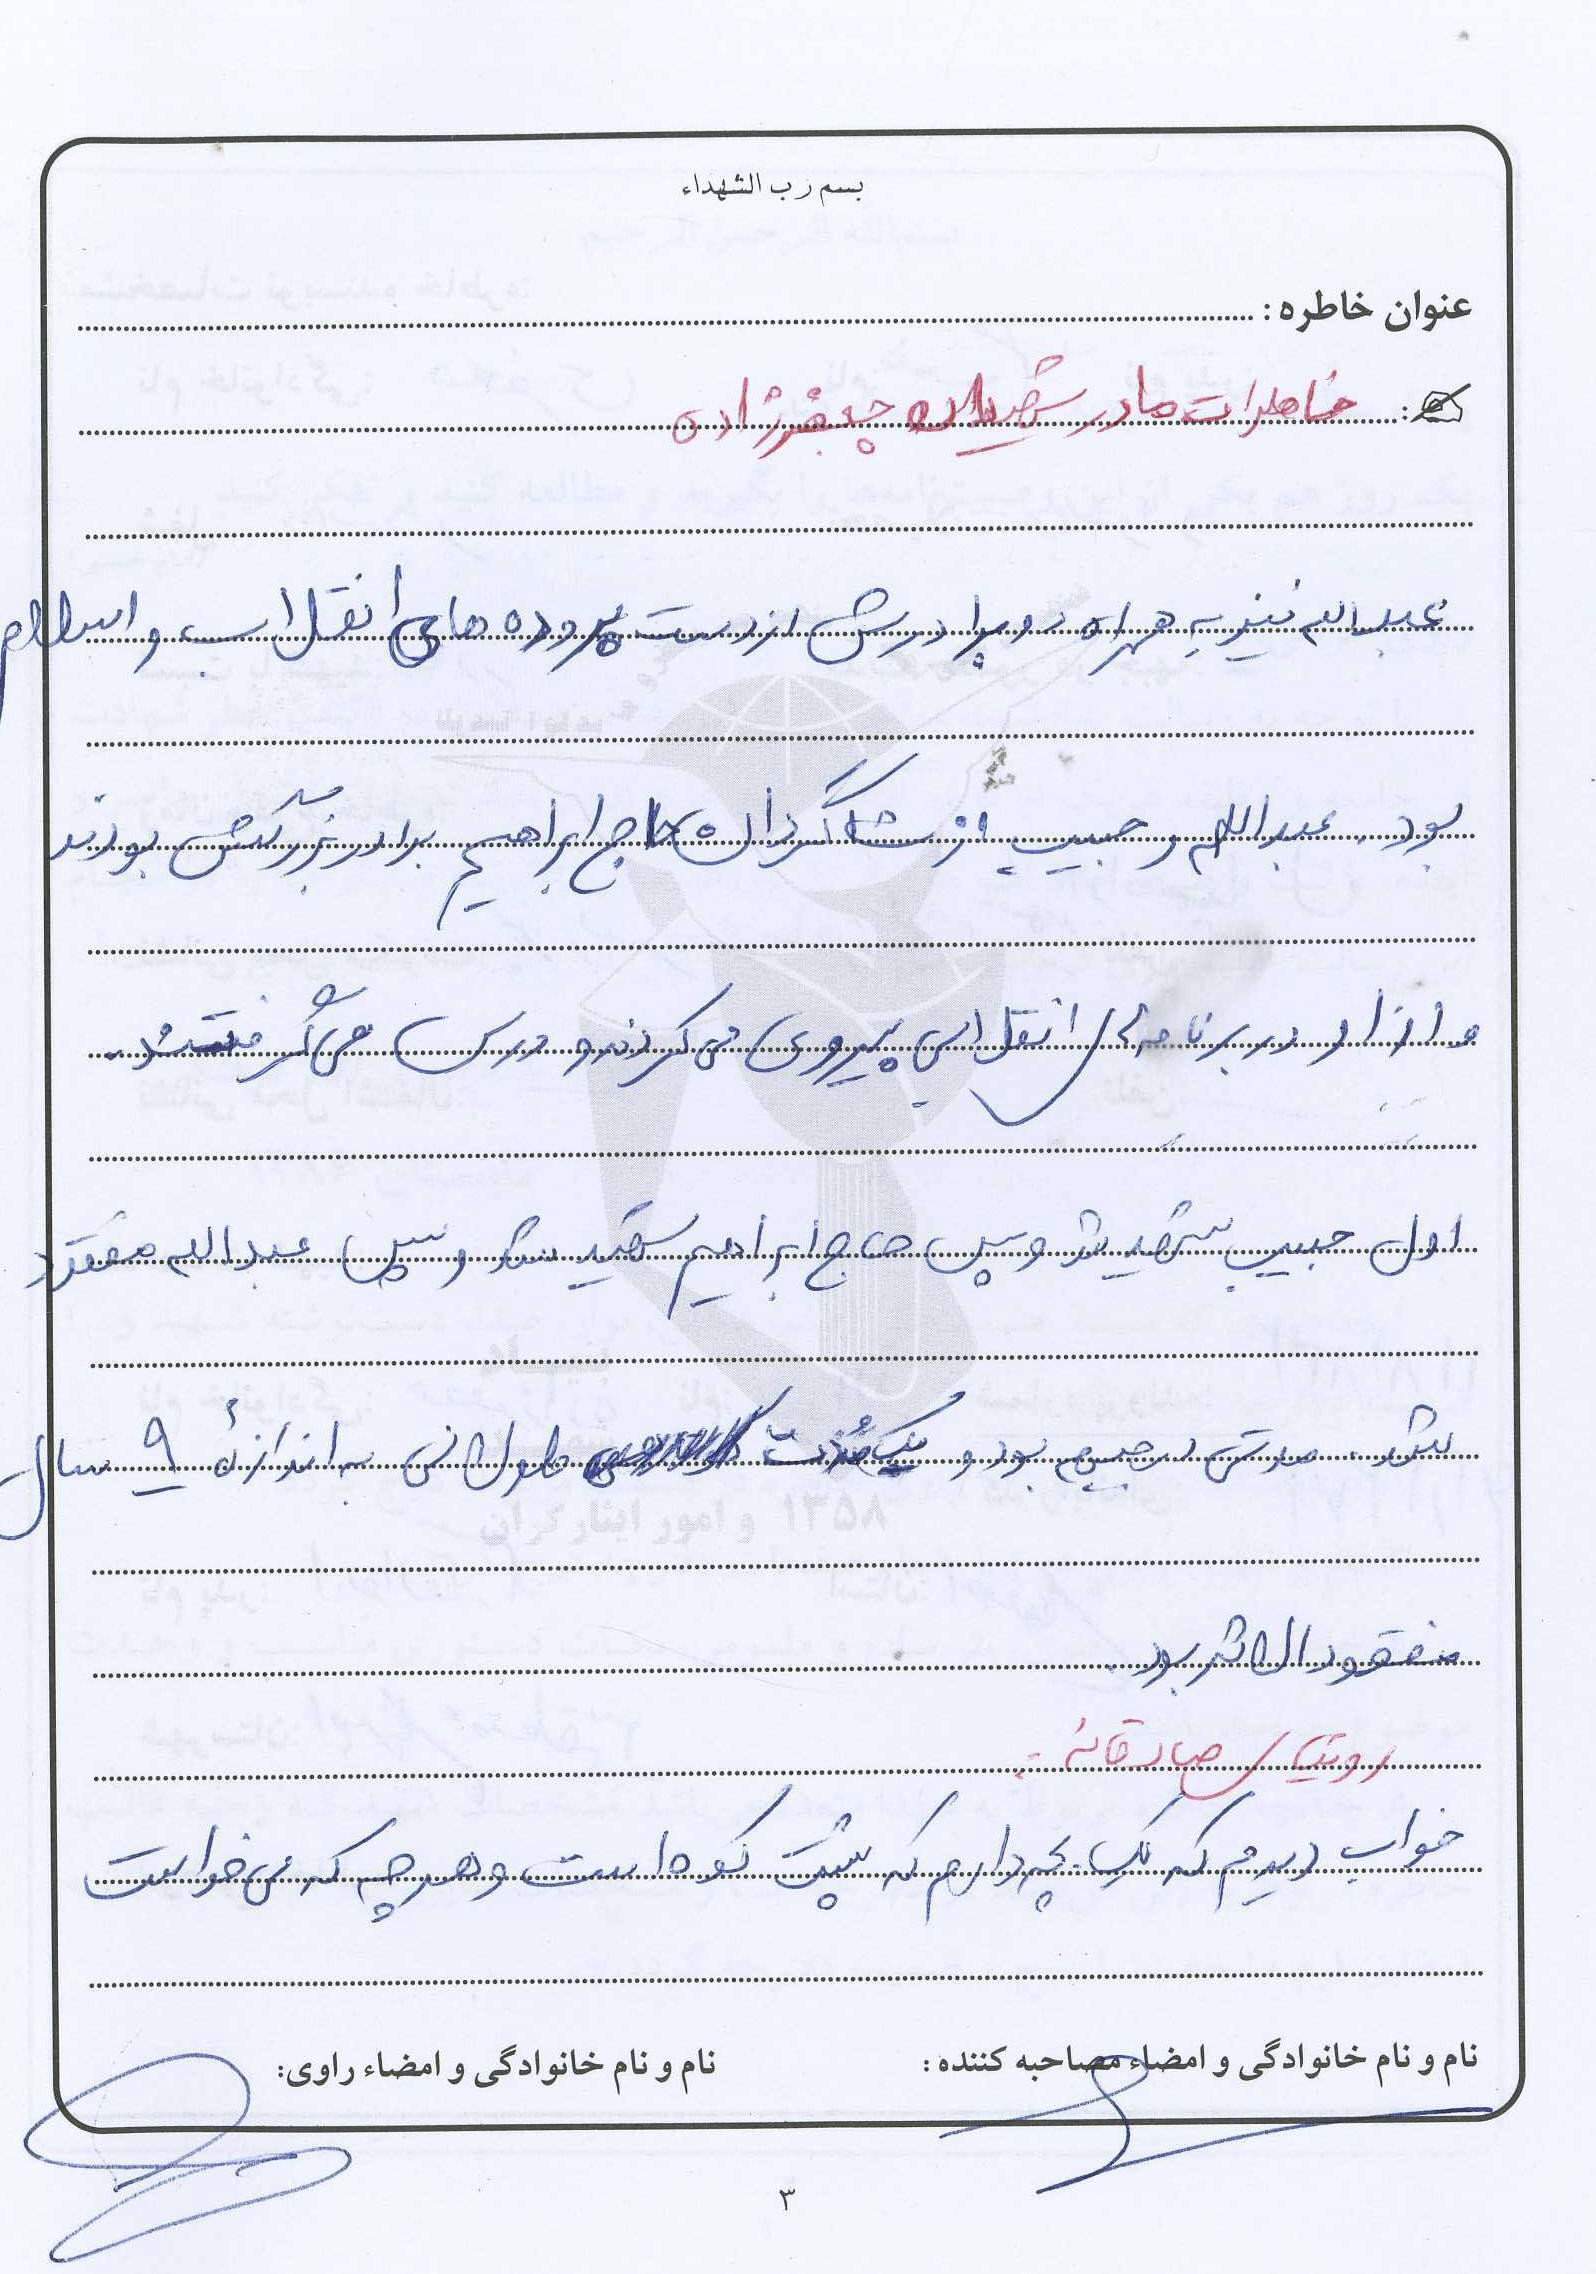 بسم رب الشهداء
عنوان خاطره :
خاطرات مادر شهیدان جعفرزاده
عبدالله نیز به همراه دو برادرش از دست پرورده های انقلاب و اسلام
بود. عبدالله و حبیب از شاگردان حاج ابراهیم برادر بزرگش بودند
و از او در برنامه های انقلابی پیروی می کردند و درس می گرفتند.
اول حبیب شهید شد و سپس حاج ابراهیم شهید شد و سپس عبدالله مفقود
شد. بود و یک مدت طولانی به اندازهٔ ۹ سال
مفقودالاثر بود.
رویای صادقانه :
خواب دیدم که یک بچه دارم که پشت کوه است و هر چه که می خواست
نام و نام خانوادگی و امضاء مصاحبه کننده :
نام و نام خانوادگی و امضاء راوی:
۳